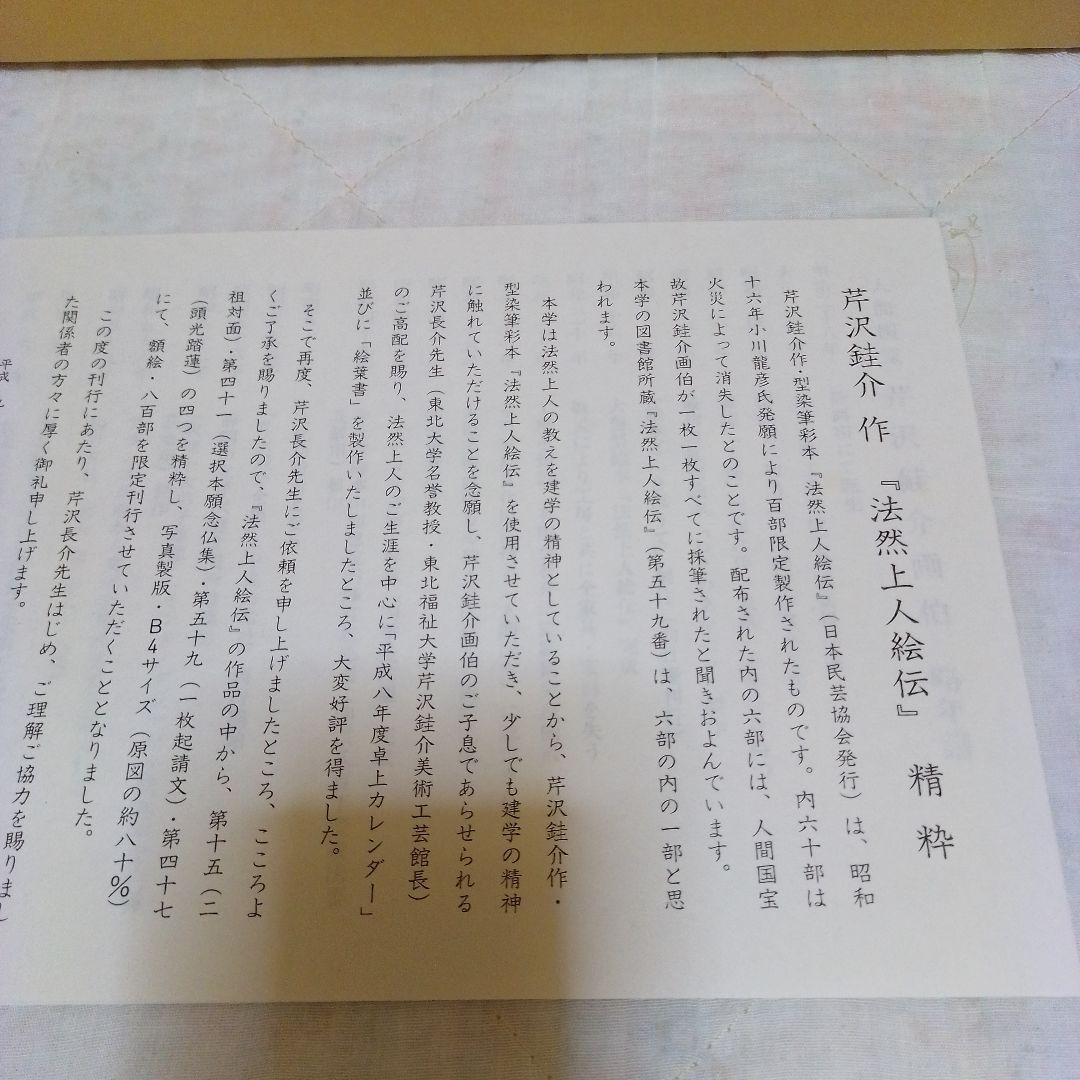 芹沢銈介 作 『法然上人絵伝』 精 粋
芹沢銈介作・型染筆彩本『法然上人絵伝』（日本民芸協会発行）は、昭和
十六年小川龍彦氏発願により百部限定製作されたものです。内六十部は
火災によって消失したとのことです。配布された内の六部には、人間国宝
故芹沢銈介画伯が一枚一枚すべてに採筆されたと聞きおよんでいます。
本学の図書館所蔵『法然上人絵伝』（第五十九番）は、六部の内の一部と思
われます。
本学は法然上人の教えを建学の精神としていることから、芹沢銈介作・
型染筆彩本『法然上人絵伝』を使用させていただき、少しでも建学の精神
に触れていただけることを念願し、芹沢銈介画伯のご子息であらせられる
芹沢長介先生（東北大学名誉教授・東北福祉大学芹沢銈介美術工芸館長）
のご高配を賜り、法然上人のご生涯を中心に「平成八年度卓上カレンダー」
並びに「絵葉書」を製作いたしましたところ、大変好評を得ました。
そこで再度、芹沢長介先生にご依頼を申し上げましたところ、こころよ
くご了承を賜りましたので、『法然上人絵伝』の作品の中から、第十五（二
祖対面）・第四十一（選択本願念仏集）・第五十九（一枚起請文）・第四十七
（頭光踏蓮）の四つを精粋し、写真製版・B4サイズ（原図の約八十%）
にて、額絵・八百部を限定刊行させていただくこととなりました。
この度の刊行にあたり、芹沢長介先生はじめ、ご理解ご協力を賜りまし
た関係者の方々に厚く御礼申し上げます。
平成